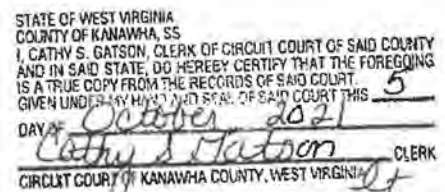 STATE OF WEST VIRGINIA
COUNTY OF KANAWHA, SS
I, CATHY S. GATSON, CLERK OF CIRCUIT COURT OF SAID COUNTY
AND IN SAID STATE, DO HEREBY CERTIFY THAT THE FOREGOING
IS A TRUE COPY FROM THE RECORDS OF SAID COURT.
GIVEN UNDER MY HAND AND SEAL OF SAID COURT THIS 5
DAY OF October 2021
Cathy S Gatson CLERK
CIRCUIT COURT OF KANAWHA COUNTY, WEST VIRGINIA